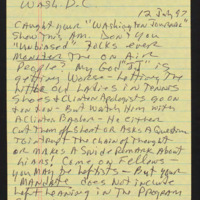 WASH. D.C.
12 July 97
Caught your "Washington Journal"
Show this AM. Don't you
"Unbiased" folks ever
Monitor the on Air
People? My God "It" is
getting Worse - Letting The
bitter old Ladies in Tennis
Shoes & Clinton Apologists go on
- But Watch Him With
A Clinton Bgsher - He either
Cuts Them off Short or Asks A Question
To interrupt The Chain of Thought
or makes A Snide Remark About
! Come on Fellows -
you may be Leftists - But your
"MANDATE" does Not include
Left Leaning in The Program